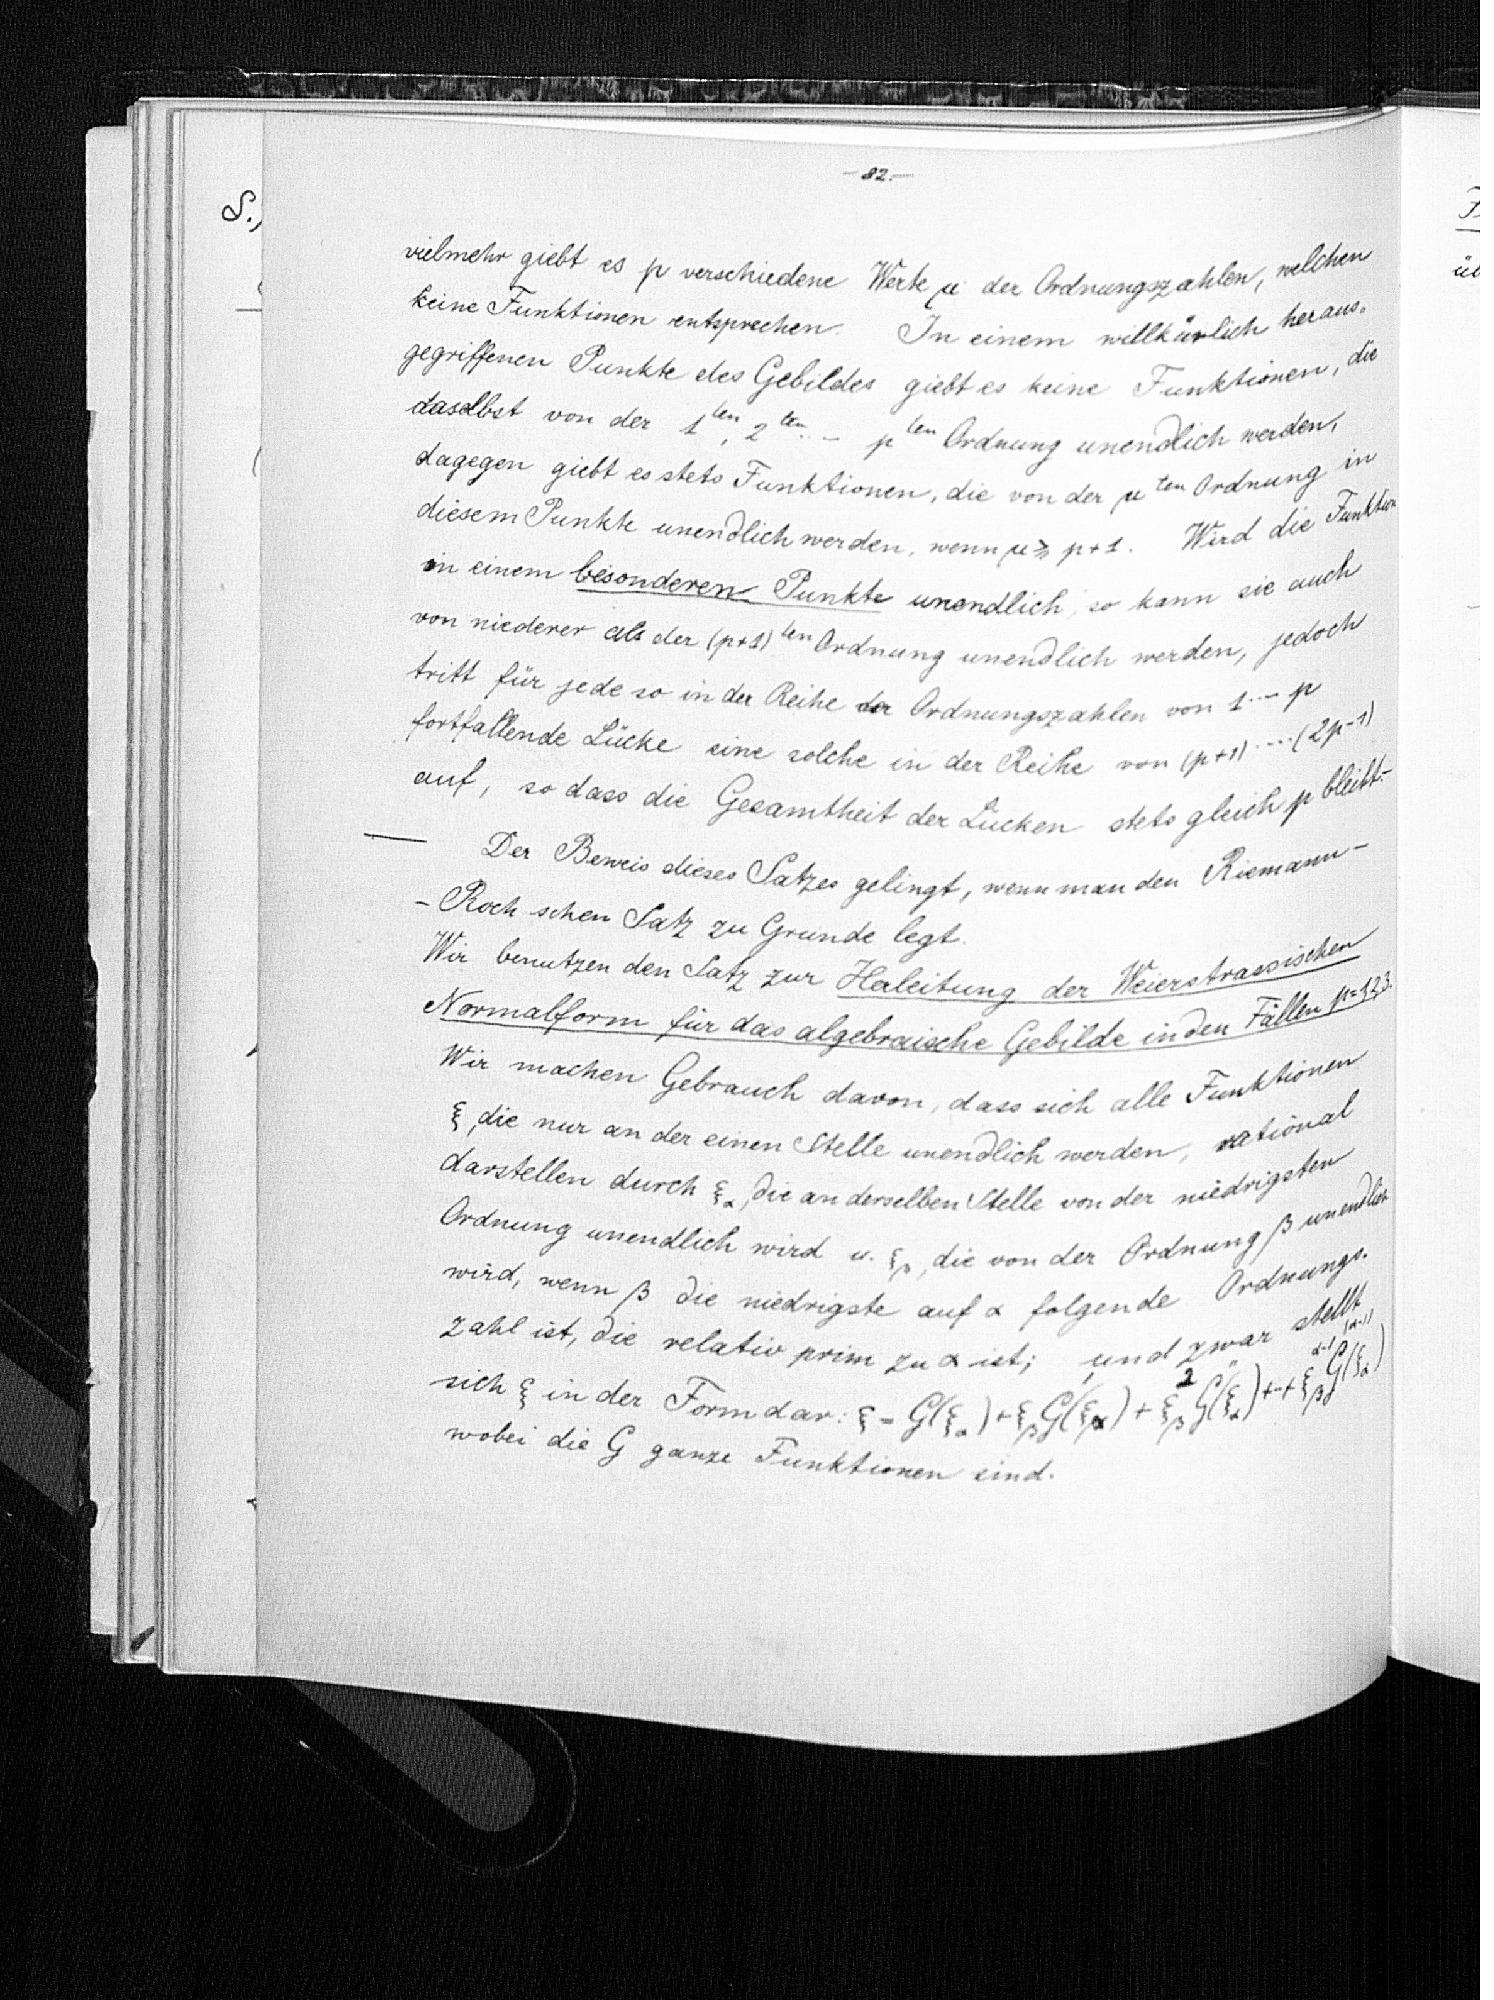 – 82. –
vielmehr giebt es p verschiedene Werte μ der Ordnungszahlen, welchen
keine Funktionen entsprechen. In einem willkürlich heraus-
gegriffenen Punkte des Gebildes giebt es keine Funktionen, die
daselbst von der 1ten, 2ten ... pten Ordnung unendlich werden,
dagegen giebt es stets Funktionen, die von der μten Ordnung in
diesem Punkte unendlich werden, wenn μ ≥ p+1. Wird die Funktion
in einem besonderen Punkte unendlich, so kann sie auch
von niederer als der (p+1)ten Ordnung unendlich werden, jedoch
tritt für jede so in der Reihe der Ordnungszahlen von 1 ... p
fortfallende Lücke eine solche in der Reihe von (p+1) .... (2p-1)
auf, so dass die Gesamtheit der Lücken stets gleich p bleibt.–
— Der Beweis dieses Satzes gelingt, wenn man den Riemann-
-Roch schen Satz zu Grunde legt.
Wir benutzen den Satz zur Herleitung der Weierstrassischen
Normalform für das algebraische Gebilde in den Fällen p=1,2,3.
Wir machen Gebrauch davon, dass sich alle Funktionen
ξ, die nur an der einen Stelle unendlich werden, rational
darstellen durch ξ_α, die an derselben Stelle von der niedrigsten
Ordnung unendlich wird u. ξ_β, die von der Ordnung β unendlich
wird, wenn β die niedrigste auf α folgende Ordnungs-
zahl ist, die relativ prim zu α ist; und zwar stellt
sich ξ in der Form dar: ξ = G(ξ_α) + ξ_β G'(ξ_α) + ξ_β^2 G''(ξ_α) + ... + ξ_β^{α-1} G^{(α-1)}(ξ_α)
wobei die G ganze Funktionen sind.
S.,
üb